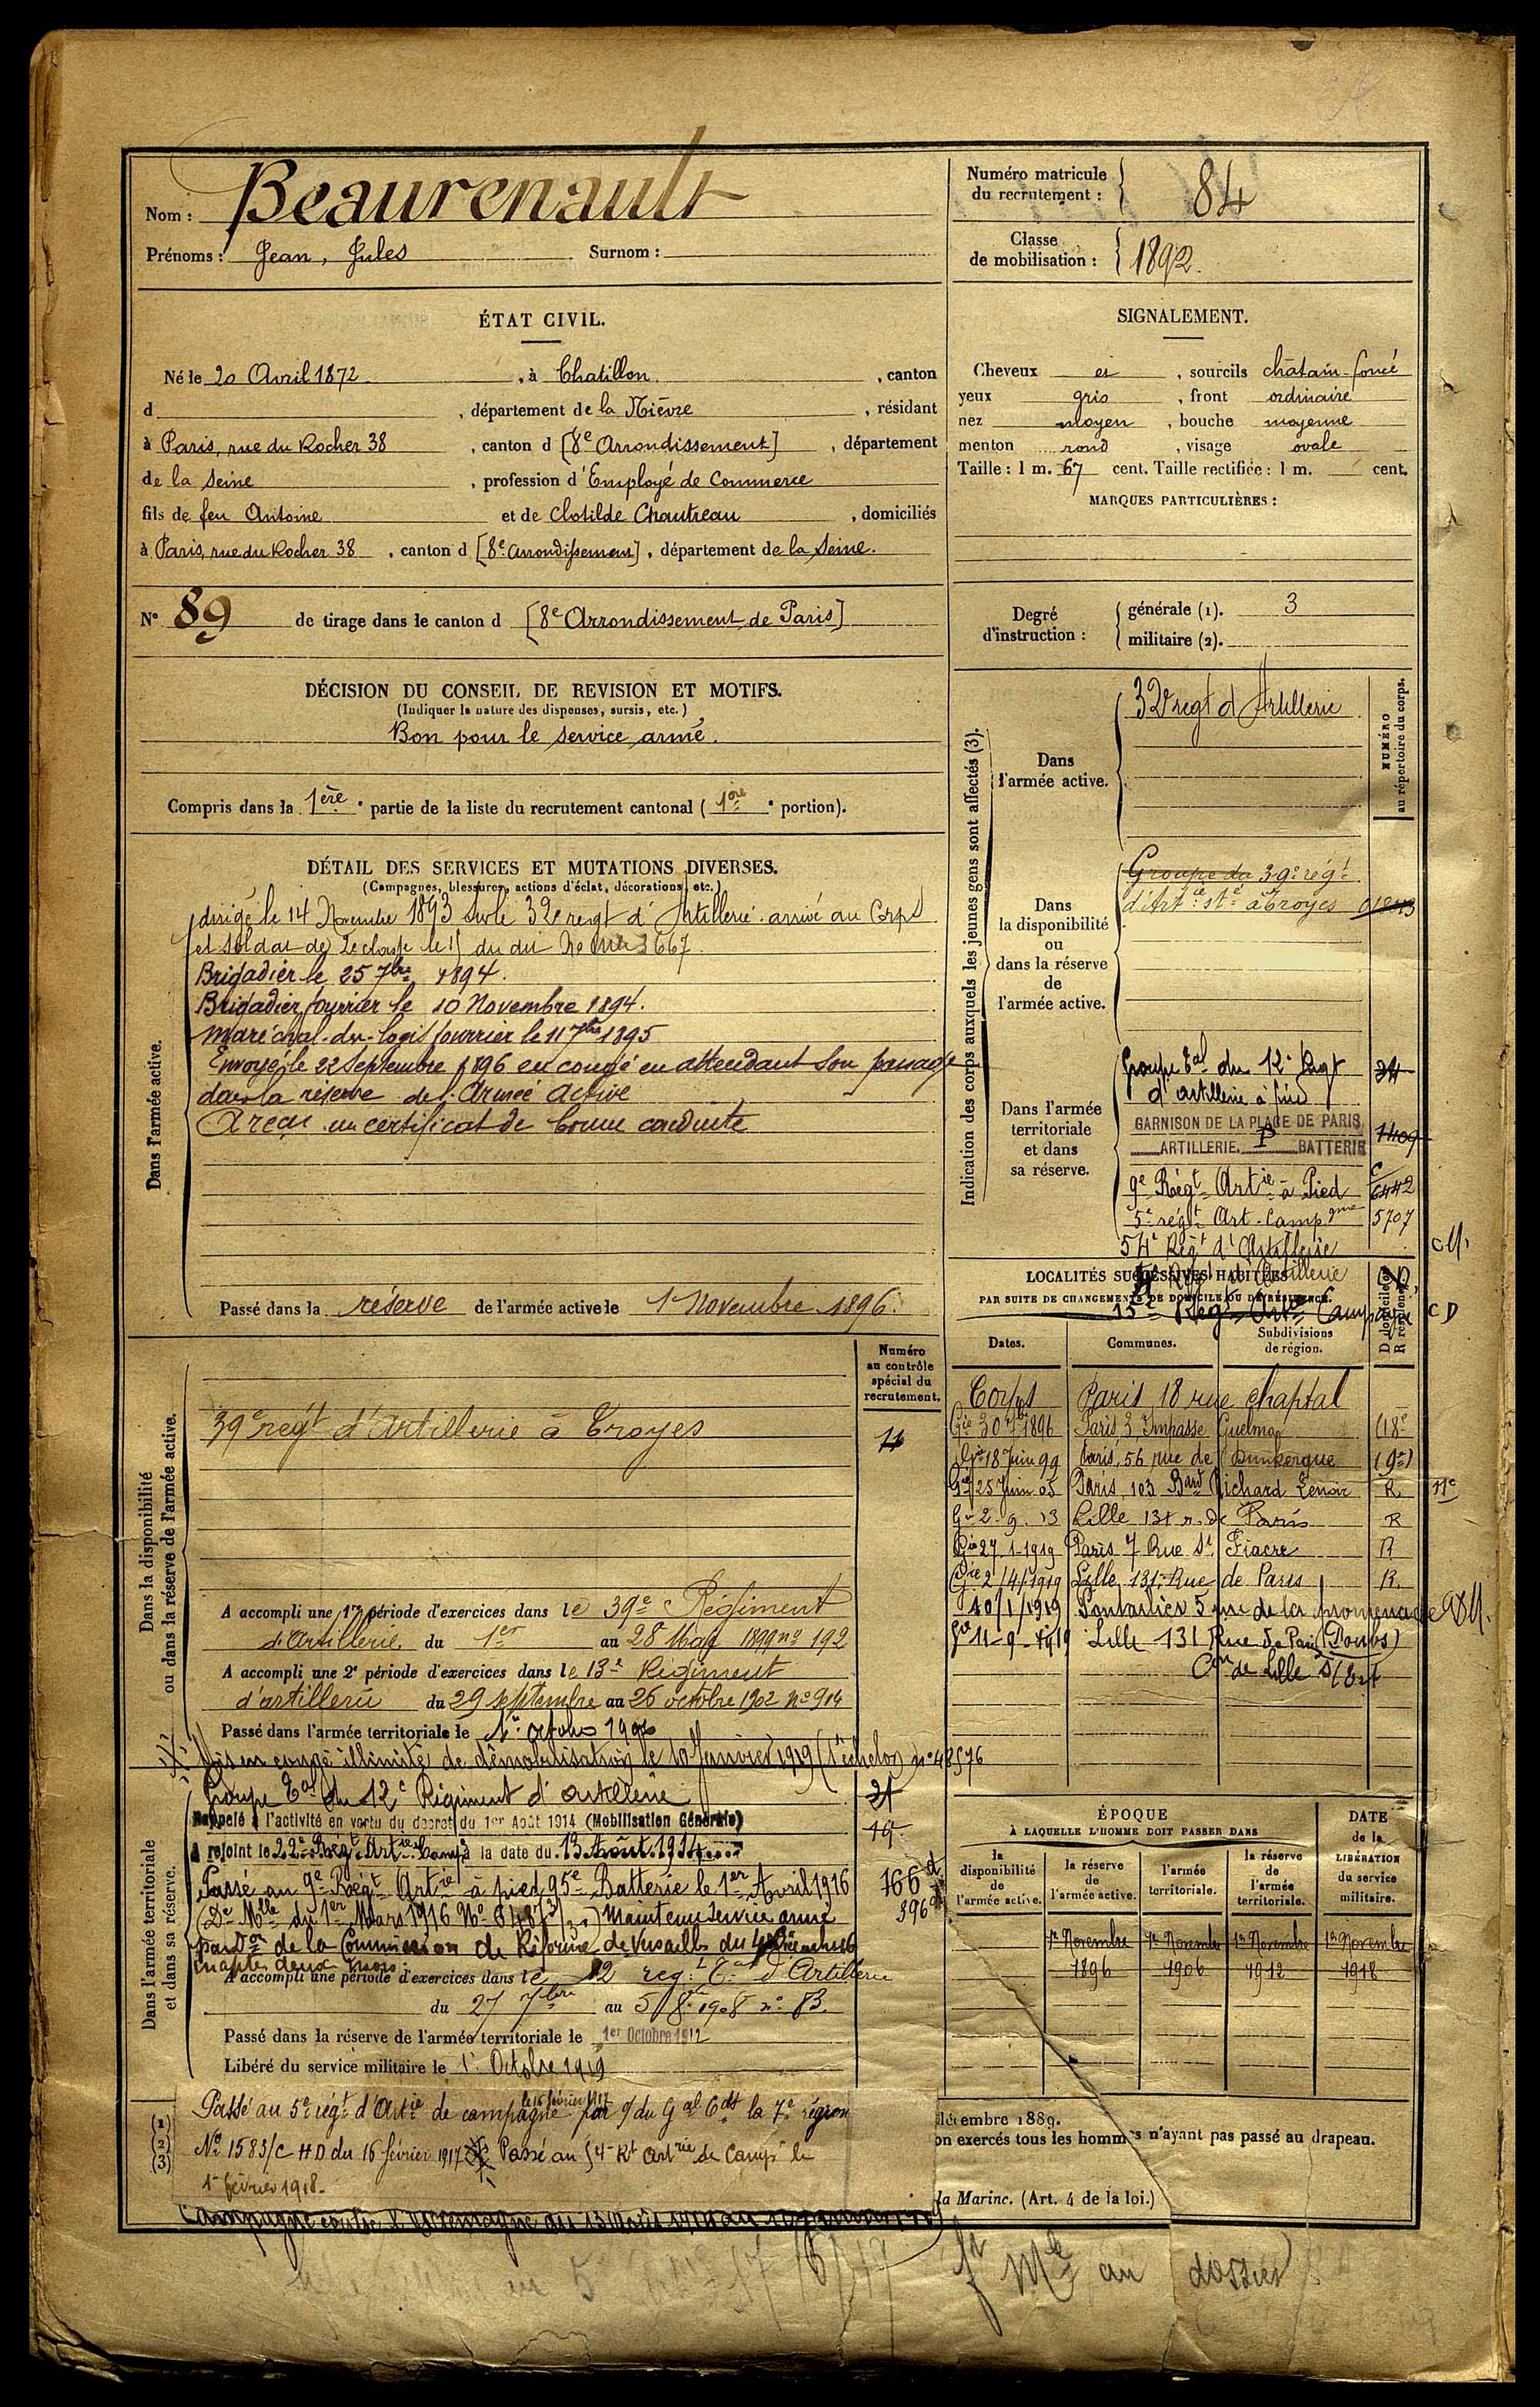 Nom : Beaurenault
Prénoms : Jean, Jules Surnom :
Numéro matricule du recrutement : 84
Classe de mobilisation : 1892.
ÉTAT CIVIL.
Né le 20 Avril 1872, à Chatillon, canton
d , département de la Nièvre, résidant
à Paris, rue du Rocher 38, canton d [8e Arrondissement], département
de la Seine, profession d'Employé de Commerce
fils de feu Antoine et de Clotilde Chautreau, domiciliés
à Paris, rue du Rocher 38, canton d [8e arrondissement], département de la Seine.
SIGNALEMENT.
Cheveux et, sourcils châtain-foncé
yeux gris, front ordinaire
nez moyen, bouche moyenne
menton rond, visage ovale
Taille : 1 m. 67 cent. Taille rectifiée : 1 m. cent.
MARQUES PARTICULIÈRES :
N° 89 de tirage dans le canton d [8e Arrondissement de Paris]
Degré d'instruction : générale (1). 3
militaire (2).
DÉCISION DU CONSEIL DE REVISION ET MOTIFS.
(Indiquer la nature des dispenses, sursis, etc.)
Bon pour le service armé.
Compris dans la 1ère partie de la liste du recrutement cantonal (1ère portion).
DÉTAIL DES SERVICES ET MUTATIONS DIVERSES.
(Campagnes, blessures, actions d'éclat, décorations, etc.)
Dans l'armée active.
dirigé le 14 Novembre 1893 sur le 32e regt d'Artillerie. arrivé au Corps
et soldat de 2e classe le 15 du dit
Brigadier le 25 7bre 1894.
Brigadier fourrier le 10 Novembre 1894.
Maréchal-des-logis fourrier le 11 7bre 1895
Envoyé le 22 Septembre 1896 en congé en attendant son passage
dans la réserve de l'Armée active
A reçu un certificat de bonne conduite
Passé dans la réserve de l'armée active le 1 Novembre 1896.
Indication des corps auxquels les jeunes gens sont affectés (3).
NUMÉRO au répertoire du corps.
Dans l'armée active.
32e regt d'Artillerie
Dans la disponibilité ou dans la réserve de l'armée active.
Groupe du 39e régt
d'Artie sté à Troyes
Dans l'armée territoriale et dans sa réserve.
Groupe Eal du 12e Regt 24
d'artillerie à pied
GARNISON DE LA PLACE DE PARIS
ARTILLERIE. P BATTERIE 1409
9e Régt Artie à Pied 6442
5e régt Art. Campgne 5707
54e Régt d'Artillerie
15e Régt Artie Campagne
LOCALITÉS SUCCESSIVES HABITÉES
PAR SUITE DE CHANGEMENTS DE DOMICILE OU DE RÉSIDENCE.
Dates. Communes. Subdivisions de région. D domicile. R résidence.
Corps Paris, 18 rue Chaptal
Gie 30 7 1896 Paris, 3, Impasse Guelma (18e
Gie 18 Juin 99 Paris, 56 rue de Dunkerque (9e)
Gie 25 Juin 05 Paris, 103 Bard Richard Lenoir R. 11e
Gie 2-9-13 Lille 131 r. de Paris R
Gie 27-1-1919 Paris 7 Rue St Fiacre R
Gie 2/4/1919 Lille, 131, Rue de Paris R.
10/1/1919 Pontarlier 5 rue de la promenade
Gie 11-9-1919 Lille 131 Rue de Paris (Doubs)
Con de Lille
Numéro au contrôle spécial du recrutement.
Dans la disponibilité ou dans la réserve de l'armée active.
39e regt d'Artillerie à Troyes
A accompli une 1re période d'exercices dans le 39e Régiment
d'Artillerie du 1er au 28 Mai 1899 n° 192
A accompli une 2e période d'exercices dans le 13e Régiment
d'artillerie du 29 septembre au 26 octobre 1902 n° 914
Passé dans l'armée territoriale le 1er Octobre 1906
Mis en congé illimité de démobilisation le 10 Janvier 1919 (1er échelon) n° 48576
Dans l'armée territoriale et dans sa réserve.
Groupe Eal du 12e Régiment d'artillerie
Rappelé à l'activité en vertu du decret du 1er Août 1914 (Mobilisation Générale)
A rejoint le 22e Régt Artie Camp à la date du 13 Août 1914
Passé au 9e Régt Artie à pied 95e Batterie le 1er Avril 1916
(De Mlle du 1er Mars 1916 Maintenu service armé
par Don de la Commission de Réforme de Versailles du
A accompli une période d'exercices dans le 12 regt Eal d'Artillerie
du 27 7bre au 5 8bre 1908 n° 83.
Passé dans la réserve de l'armée territoriale le 1er Octobre 1912
Libéré du service militaire le 1er Octobre 1919
ÉPOQUE À LAQUELLE L'HOMME DOIT PASSER DANS
DATE de la LIBÉRATION du service militaire.
la disponibilité de l'armée active.
la réserve de l'armée active.
l'armée territoriale.
la réserve de l'armée territoriale.
1er Novembre 1er Novembre 1er Novembre 1er Novembre
1896 1906 1912 1918
(1)
(2)
(3)
Passé au 5e régt d'Artie de campagne le 16 février 1917 par o/ du Gal Cdt la 7e région
No 1583/c HD du 16 février 1917 Passé au 54e Rt Artrie de Camp le
1er février 1918.
Campagne contre l'Allemagne du 13 Août 1914 au 10 Janvier 1919
décembre 1889.
on exercés tous les hommes n'ayant pas passé au drapeau.
la Marine. (Art. 4 de la loi.)
au dossier